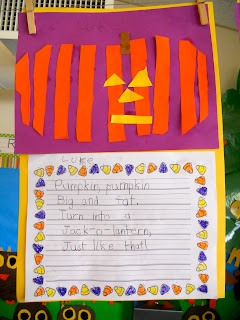 Luke
Pumpkin, pumpkin
Big and fat.
Turn into a
Jack-o-lantern,
Just like that!